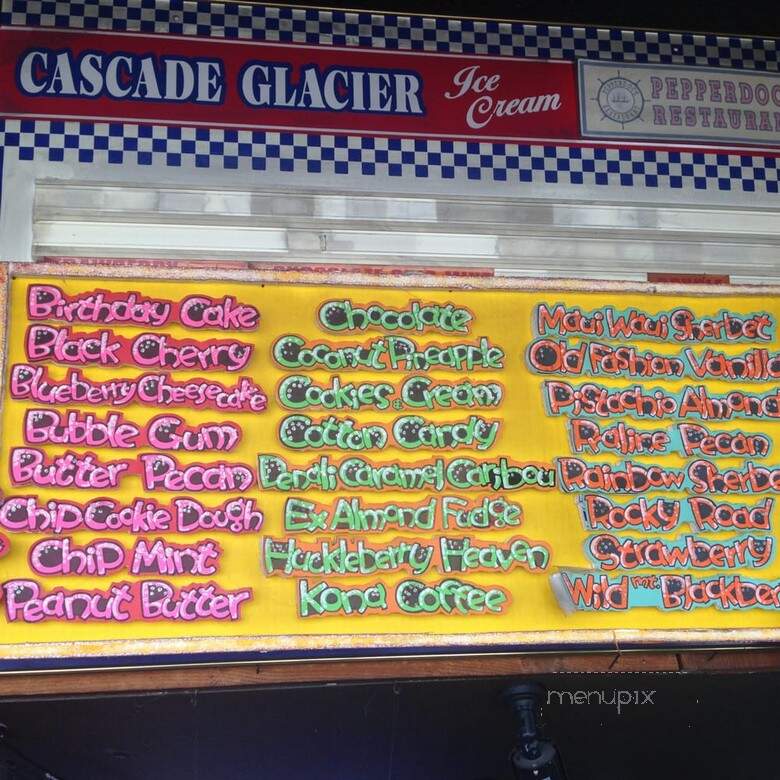 CASCADE GLACIER Ice Cream
PEPPERDOC
RESTAURA
Birthday Cake
Black Cherry
Blueberry Cheesecake
Bubble Gum
Butter Pecan
Chip Cookie Dough
Chip Mint
Peanut Butter
Chocolate
Coconut Pineapple
Cookies & Cream
Cotton Candy
Denali Caramel Caribou
Ex Almond Fudge
Huckleberry Heaven
Kona Coffee
Maui Waui Sherbet
Old Fashion Vanilla
Pistachio Almond
Praline Pecan
Rainbow Sherbe
Rocky Road
Strawberry
Wild mt Blackbe
menupix